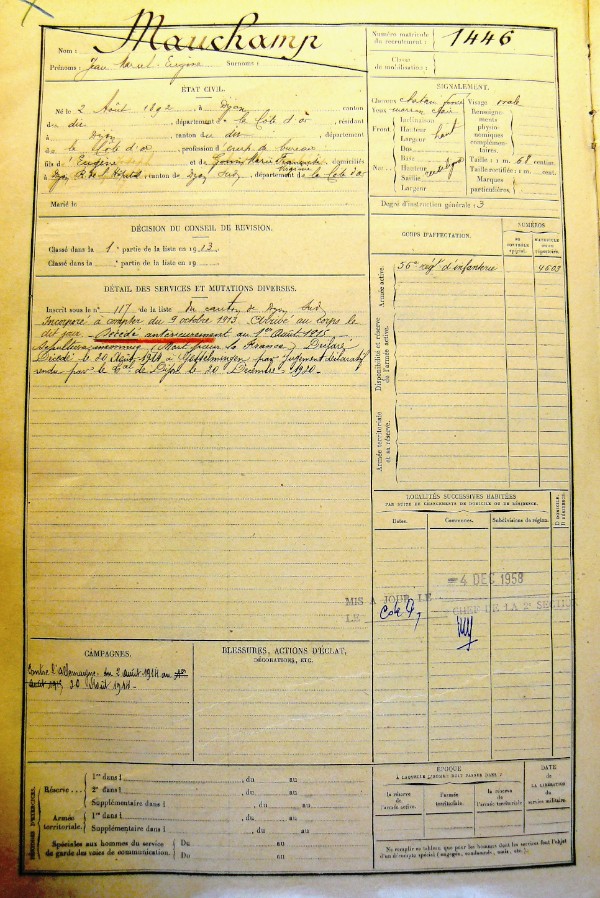 Nom : Mauchamp
Prénoms : Jean Marcel Eugène Surnoms :
Numéro matricule du recrutement : 1446
Classe de mobilisation :
ÉTAT CIVIL.
Né le 2 Août 1892, à Dijon, canton
du dit, département de la Côte d'or, résidant
à Dijon, canton du dit, département
de la Côte d'or, profession d'emp. de bureau
fils de Eugène et de Marie Françoise, domiciliés
à Dijon, canton de Dijon Sud, département de la Côte d'or
Marié le
SIGNALEMENT.
Cheveux châtain foncé Visage ovale
Yeux marron clair
Front Inclinaison Hauteur haut Largeur
Nez Dos Base Hauteur Saillie Largeur
Renseignements physionomiques complémentaires.
Taille : 1 m. 68 centim.
Taille rectifiée : 1 m. centim.
Marques particulières.
Degré d'instruction générale : 3
DÉCISION DU CONSEIL DE REVISION.
Classé dans la 1e partie de la liste en 1913.
Classé dans la partie de la liste en
DÉTAIL DES SERVICES ET MUTATIONS DIVERSES.
Inscrit sous le n° 117 de la liste du canton de Dijon Sud
Incorporé à compter du 9 octobre 1913. Arrivé au corps le
dit jour. Décédé antérieurement au 1er Août 1915.
Sépulture inconnue (Mort pour la France). Déclaré
Décédé le 20 Août 1914 à Gosselmingen par jugement déclaratif
rendu par le Tbal de Dijon le 20 Décembre 1920.
CORPS D'AFFECTATION.
NUMÉROS
au contrôle spécial.
matricule au répertoire.
Armée active.
56e régt d'infanterie 4603
Disponibilité et réserve de l'armée active.
Armée territoriale et sa réserve.
LOCALITÉS SUCCESSIVES HABITÉES
PAR SUITE DE CHANGEMENTS DE DOMICILE OU DE RÉSIDENCE.
Dates. Communes. Subdivisions de région. D. DOMICILE. R. RÉSIDENCE.
-4 DEC 1958
MIS A JOUR LE
LE CHEF DE LA 2e SECTION
CAMPAGNES.
Contre l'Allemagne du 2 août 1914 au 1er
août 1915 20 Août 1914.
BLESSURES, ACTIONS D'ÉCLAT,
DÉCORATIONS, ETC.
PÉRIODES D'EXERCICES.
Réserve
1re dans l , du au
2e dans l , du au
Supplémentaire dans l , du au
Armée territoriale.
1re dans l , du au
Supplémentaire dans l , du au
Spéciales aux hommes du service de garde des voies de communication.
Du au
Du au
ÉPOQUE
À LAQUELLE L'HOMME DOIT PASSER DANS :
la réserve de l'armée active.
l'armée territoriale.
la réserve de l'armée territoriale.
DATE
DE LA LIBÉRATION DU service militaire.
Ne remplir ce tableau que pour les hommes dont les services font l'objet
d'un décompte spécial (engagés, condamnés, omis, etc.).